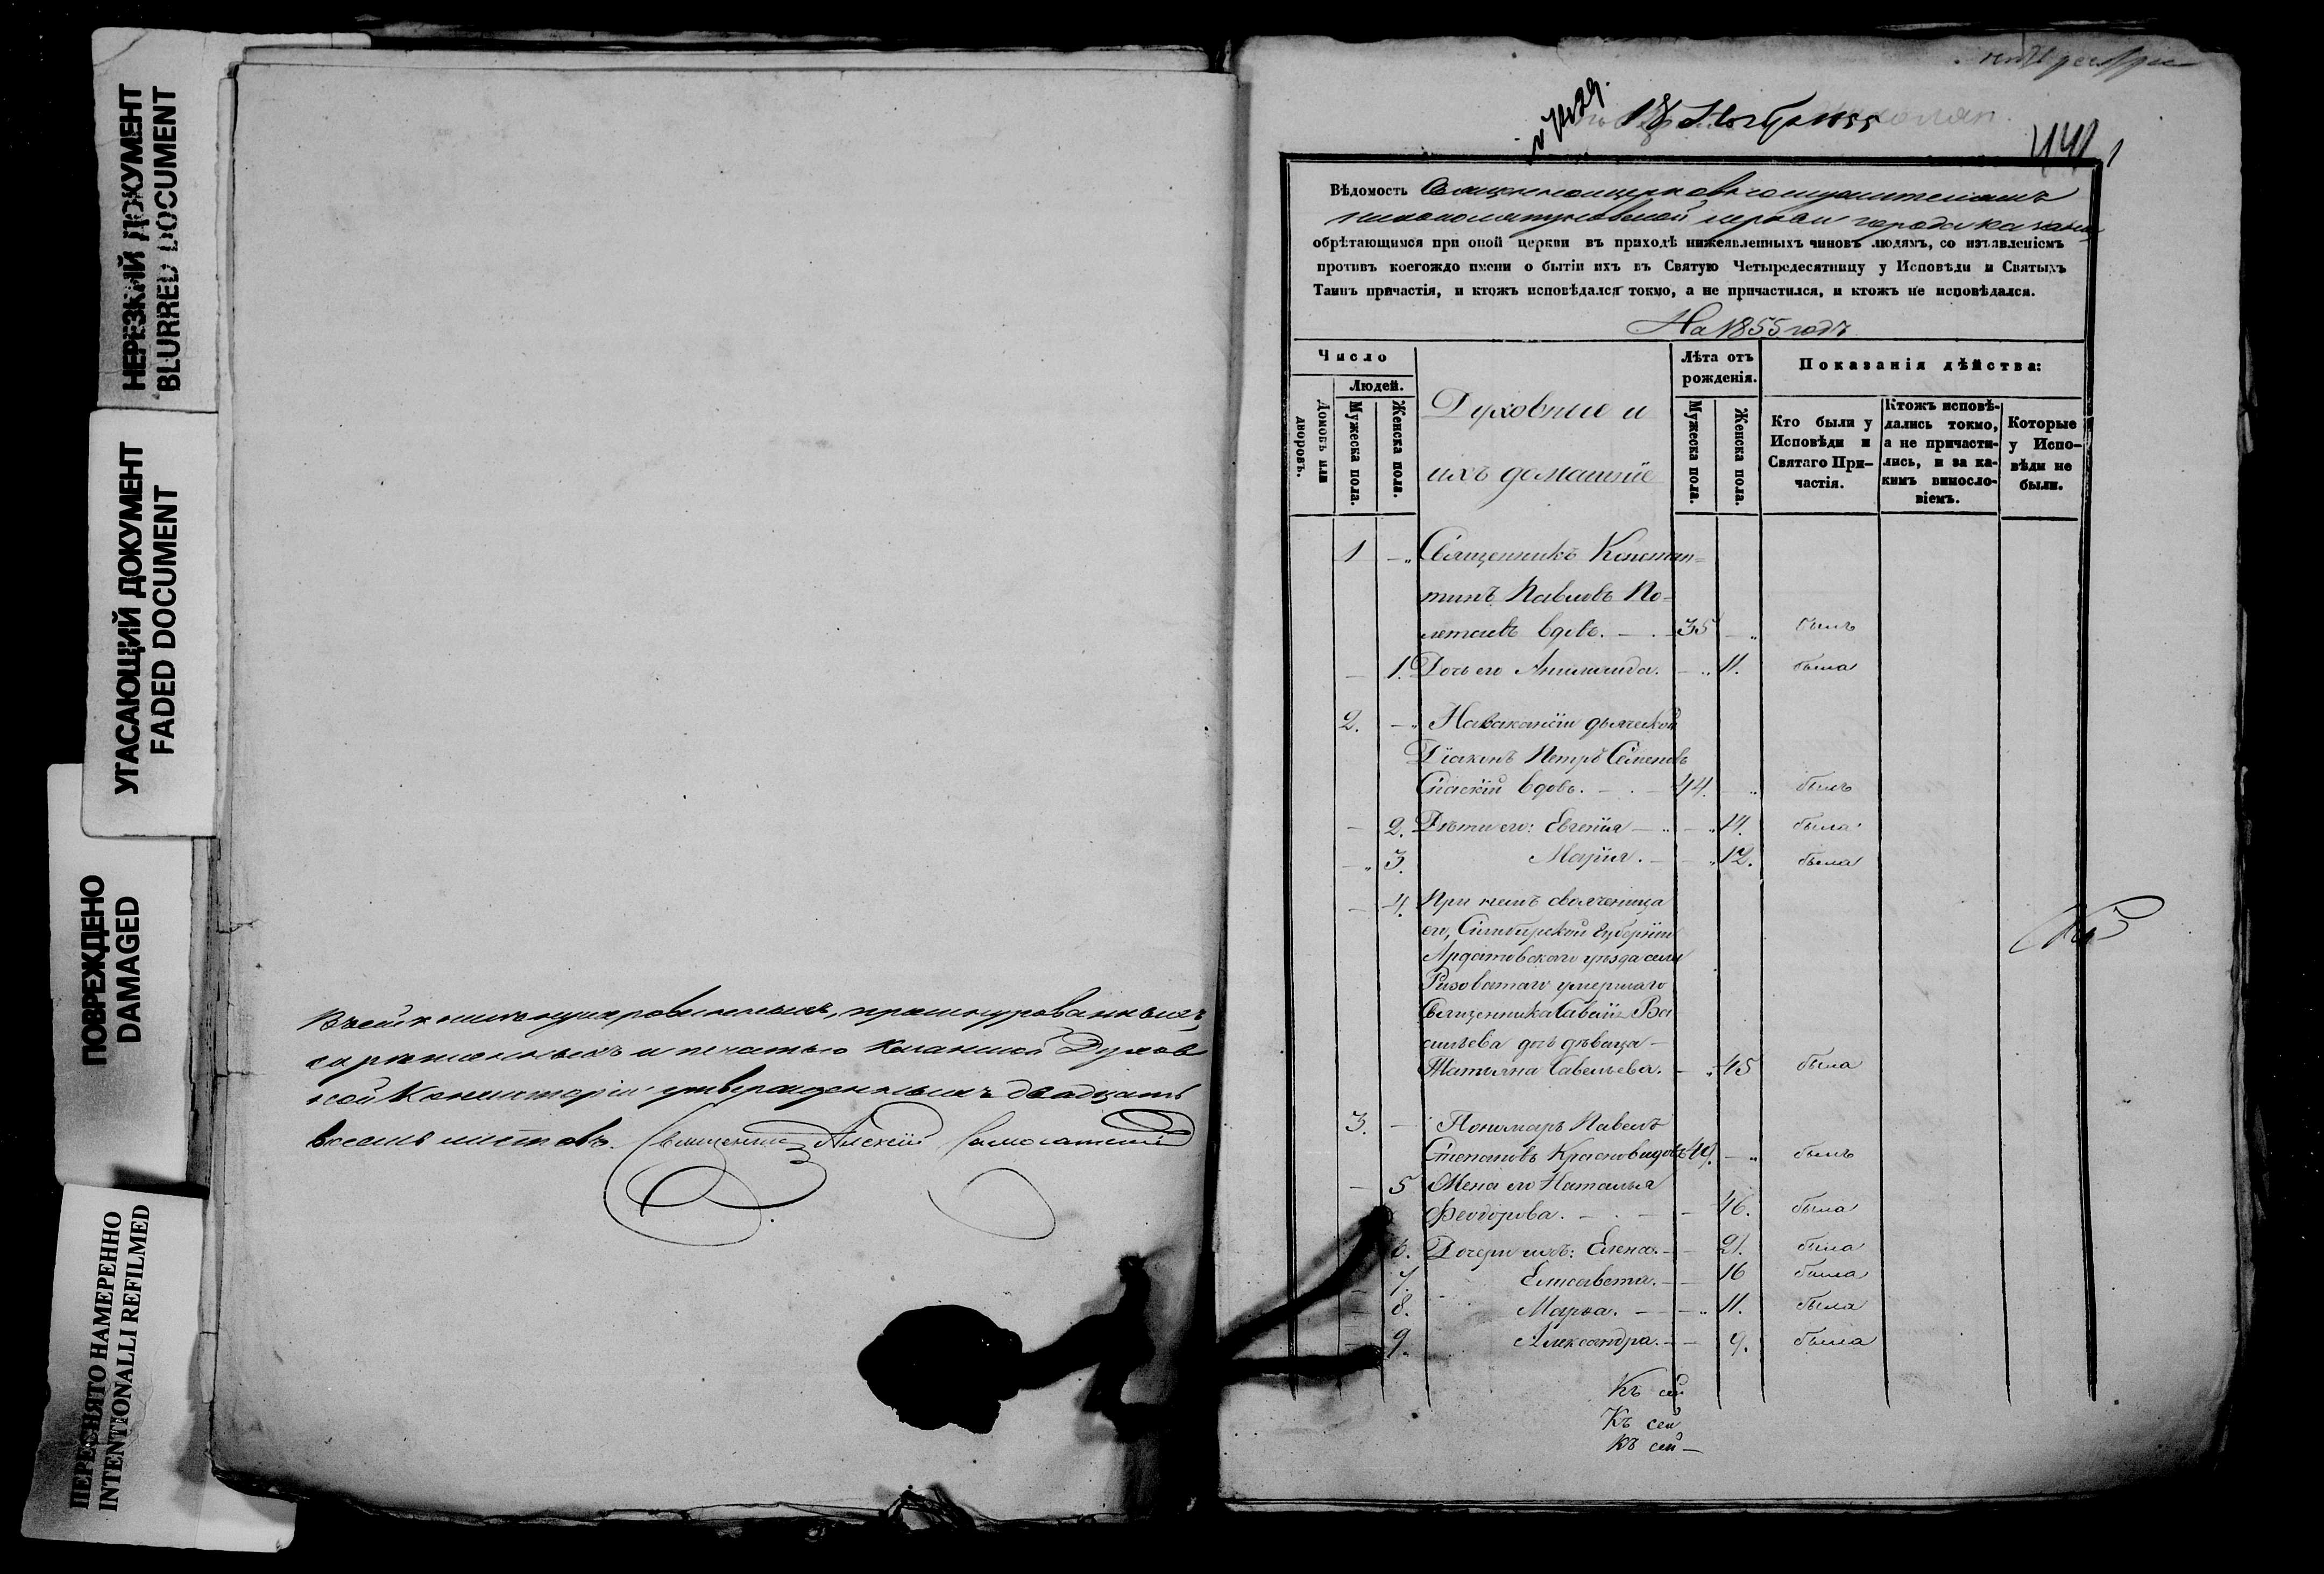 НЕРЕЗКИЙ ДОКУМЕНТ
BLURRED DOCUMENT
УГАСАЮЩИЙ ДОКУМЕНТ
FADED DOCUMENT
ПОВРЕЖДЕНО
DAMAGED
ПЕРЕСНЯТО НАМЕРЕННО
INTENTIONALLI REFILMED
В сей книге нумерованныхъ, прошнурованныхъ,
скрепленныхъ и печатью Казанской Духов
ной Консисторіи утвержденныхъ двадцать
восемь листовъ. Священникъ Алексій
18 Ноябр 1855
Вѣдомость
церкви города Казани
обрѣтающимся при оной церкви въ приходѣ нижеявленныхъ чиновъ людямъ, со изъявленіемъ
противъ коегождо имени о бытіи ихъ въ Святую Четыредесятницу у Исповѣди и Святыхъ
Таинъ причастія, и ктожъ исповѣдался токмо, а не причастился, и ктожъ не исповѣдался.
На 1855 годъ
Число
Людей.
Домовъ или дворовъ.
Мужеска пола.
Женска пола.
Духовные и
ихъ домашніе
Лѣта отъ рожденія.
Мужеска пола.
Женска пола.
Показанія дѣйства:
Кто были у Исповѣди и Святаго Причастія.
Ктожъ исповѣдались токмо, а не причастились, и за какимъ винословіемъ.
Которые у Исповѣди не были.
1 — Священникъ Констан=
тинъ Павловъ По-
летаевъ вдовъ. — 35 — былъ
— 1. Дочь его — 11. была
2. — На вакансіи дьяческой
Діаконъ Петръ Семеновъ
Спаскій вдовъ. — 44. былъ
— 2. Дѣти его: Евгенія — 14. была
— 3. Марія. — 12. была
— 4. При немъ свояченица
его, Симбирской Губерніи
Ардатовскаго уѣзда села
умершаго
Священника Савы Ва
сильева дочь дѣвица —
Татьяна Савельева. — 45 была
3. — Пономарь Павелъ
Степановъ Красновидовъ 49. — былъ
— 5 Жена его Наталья
Феодорова. — 46. была
6. Дочери ихъ: Елена. — 21. была
7. Елисавета. — 16 была
8. Марья. — 11. была
9. Александра. — 9. была
Къ сей
Къ сей
Къ сей —